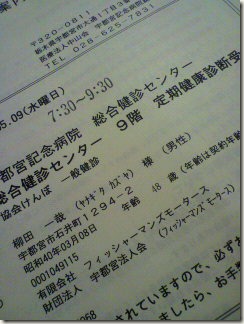 〒320-0811
栃木県宇都宮市大通1丁目3番
医療法人中山会 宇都宮記念病院
TEL 028-625-7831
5.09(水曜日)
7:30-9:30
都宮記念病院 総合健診センター
総合健診センター 9階 定期健康診断受
協会けんぽ 一般健診
柳田 一哉 (ヤナギダ カズヤ) 様 (男性)
宇都宮市石井町1294-2
昭和40年03月08日 年齢 48 歳 (年齢は契約年
0001049115
有限会社 フィッシャーマンズモータース (フィッシャーマンズモータース)
財団法人 宇都宮法人会
されていますので、必ず
ましたら、お手